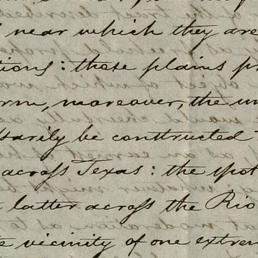 near which they are
tions: these plains p
orm, moreover, the un
ssarily be constructed
across Texas: the spot
latter across the Rio
e vicinity of one extrem